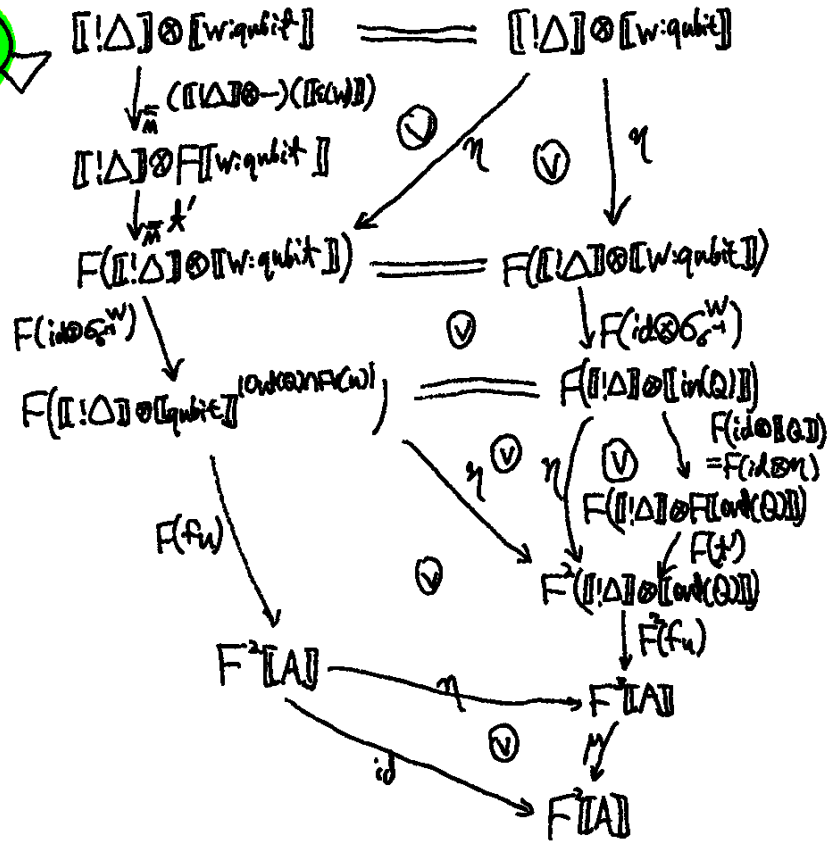 ⟦!Δ⟧⊗⟦W:qubit⟧ = ⟦!Δ⟧⊗⟦W:qubit⟧
(⟦!Δ⟧⊗−)(⟦ε(W)⟧)
η
η
⟦!Δ⟧⊗F⟦W:qubit⟧
t'
F(⟦!Δ⟧⊗⟦W:qubit⟧) = F(⟦!Δ⟧⊗⟦W:qubit⟧)
F(id⊗σ⁻¹ᵂ)
F(id⊗σ⁻¹ᵂ)
F(⟦!Δ⟧⊗⟦qubit⟧ = F(⟦!Δ⟧⊗⟦in(Q)⟧)
F(id⊗⟦Q⟧)
=F(id⊗η)
η
η
F(⟦!Δ⟧⊗F⟦out(Q)⟧)
F(t')
F(fᵤ)
F²(⟦!Δ⟧⊗⟦out(Q)⟧)
F²(fᵤ)
F²⟦A⟧
η
F³⟦A⟧
μ
id
F²⟦A⟧